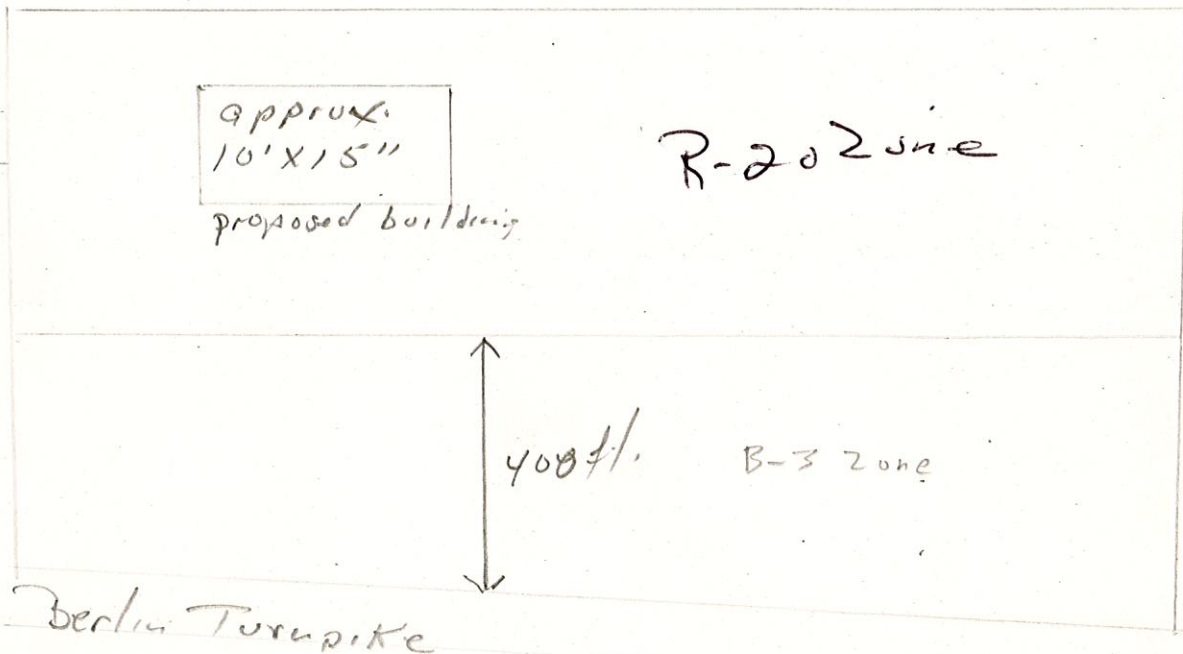 approx.
10' X 15"
proposed building
R-20 Zone
400 ft.
B-3 Zone
Berlin Turnpike